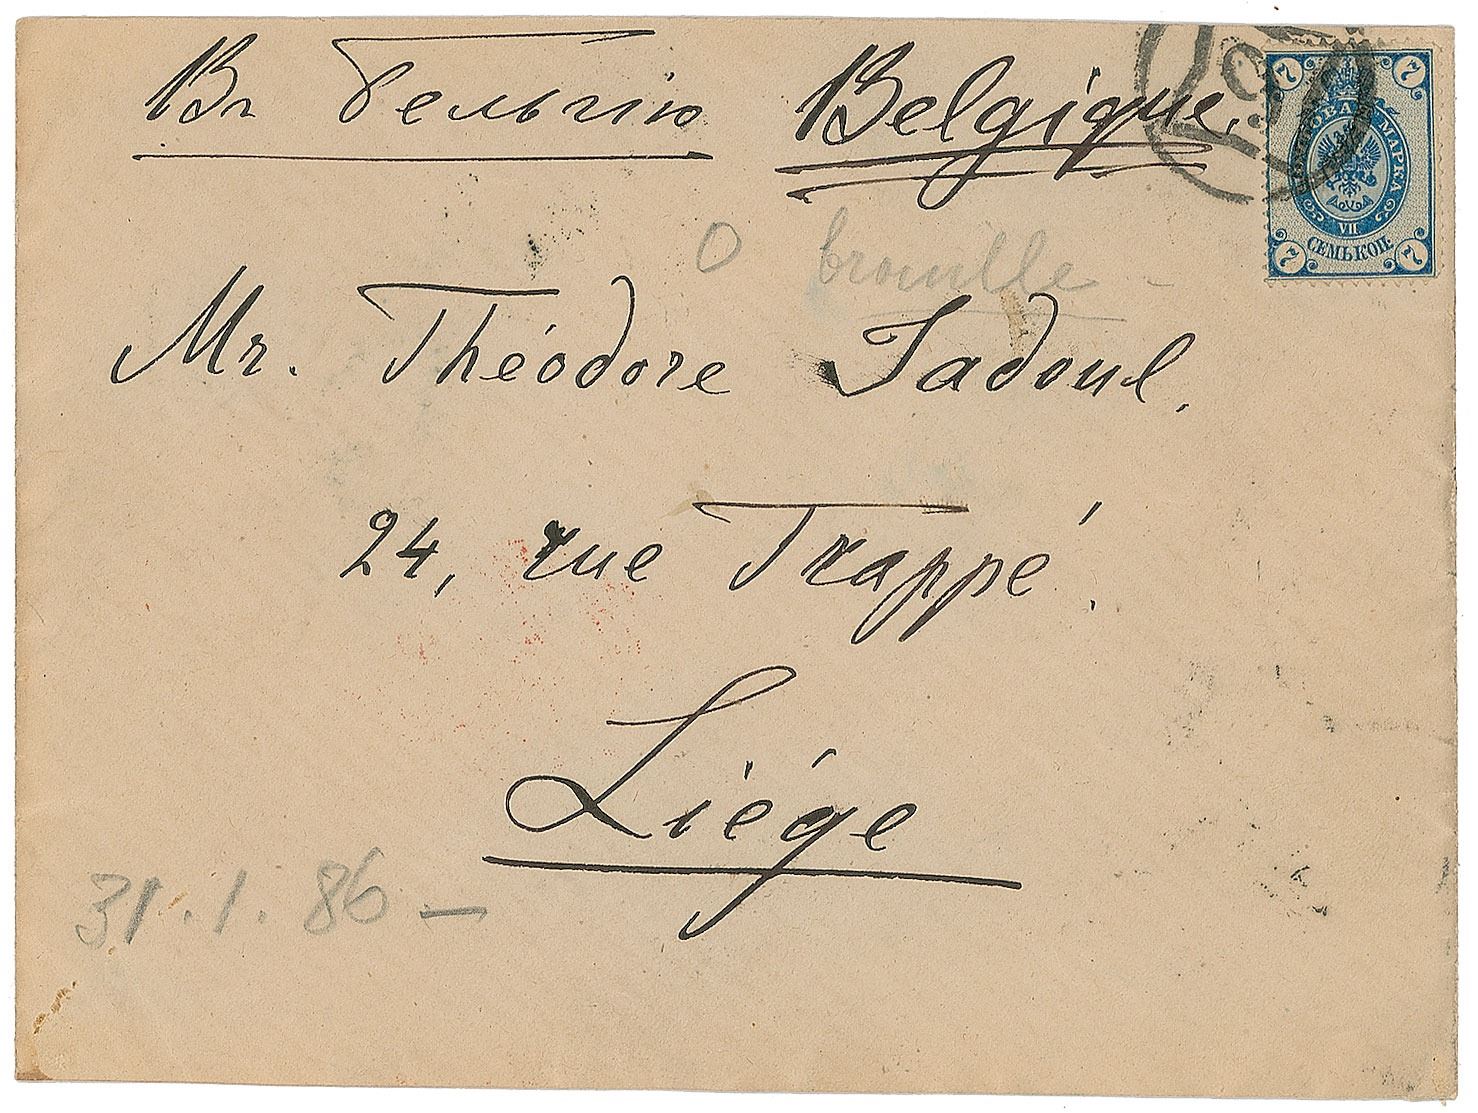 Въ Бельгію Belgique.
7 7
ПОЧТОВАЯ МАРКА
VII
СЕМЬ КОП.
7 7
O brouille -
Mr. Théodore Jadoul.
24, rue Trappé.
Liége
31.1.86 —